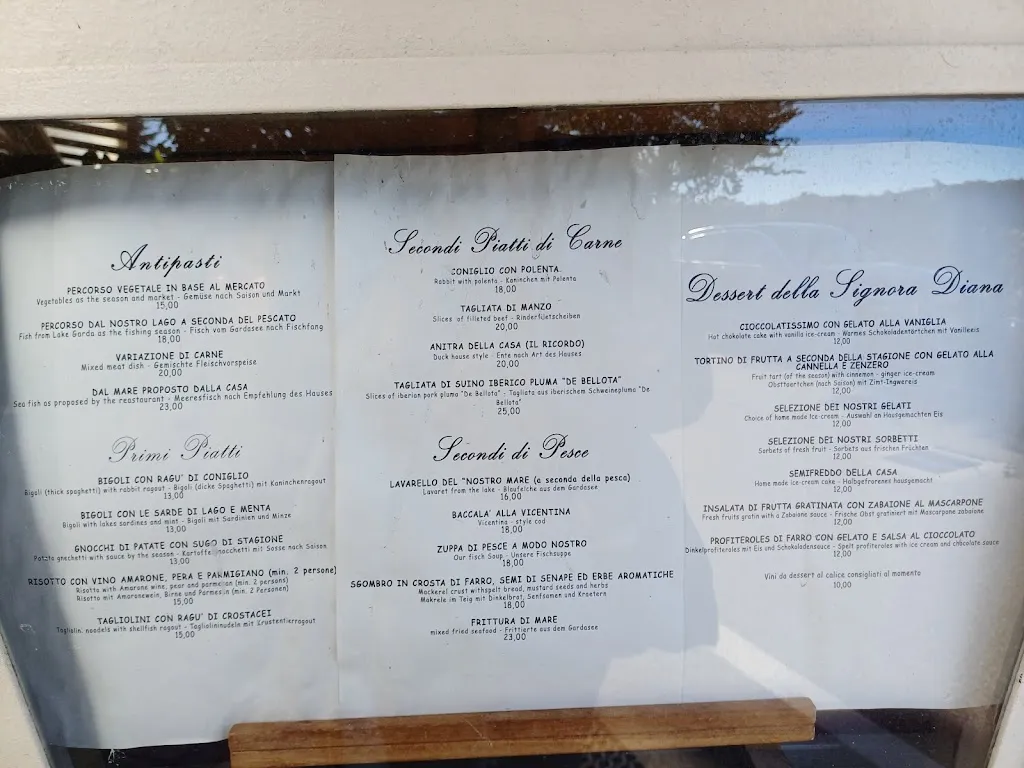 Antipasti
PERCORSO VEGETALE IN BASE AL MERCATO
Vegetables as the season and market - Gemüse nach Saison und Markt
15,00
PERCORSO DAL NOSTRO LAGO A SECONDA DEL PESCATO
Fish from Lake Garda as the fishing season - Fisch vom Gardasee nach Fischfang
18,00
VARIAZIONE DI CARNE
Mixed meat dish - Gemischte Fleischvorspeise
20,00
DAL MARE PROPOSTO DALLA CASA
Sea fish as proposed by the reastourant - Meeresfisch nach Empfehlung des Hauses
23,00
Primi Piatti
BIGOLI CON RAGU' DI CONIGLIO
Bigoli (thick spaghetti) with rabbit ragout - Bigoli (dicke Spaghetti) mit Kaninchenragout
13,00
BIGOLI CON LE SARDE DI LAGO E MENTA
Bigoli with lakes sardines and mint - Bigoli mit Sardinien und Minze
13,00
GNOCCHI DI PATATE CON SUGO DI STAGIONE
Potato gnochetti with sauce by the season - Kartoffelgnocchetti mit Sosse nach Saison
13,00
RISOTTO CON VINO AMARONE, PERA E PARMIGIANO (min. 2 persone)
Risotto with Amarone wine, pear and parmesan (min. 2 persons)
Risotto mit Amaronewein, Birne und Parmesan (min. 2 Personen)
15,00
TAGLIOLINI CON RAGU' DI CROSTACEI
Tagliolini noodels with shellfish ragout - Tagliolininudeln mit Krustentierragout
15,00
Secondi Piatti di Carne
CONIGLIO CON POLENTA
Rabbit with polenta - Kaninchen mit Polenta
18,00
TAGLIATA DI MANZO
Slices of filleted beef - Rinderfiletscheiben
20,00
ANITRA DELLA CASA (IL RICORDO)
Duck house style - Ente nach Art des Hauses
20,00
TAGLIATA DI SUINO IBERICO PLUMA "DE BELLOTA"
Slices of iberian pork pluma "De Bellota" - Tagliata aus iberischem Schweinepluma "De
Bellota"
25,00
Secondi di Pesce
LAVARELLO DEL "NOSTRO MARE (a seconda della pesca)
Lavaret from the lake - Blaufelche aus dem Gardasee
16,00
BACCALA' ALLA VICENTINA
Vicentina - style cod
18,00
ZUPPA DI PESCE A MODO NOSTRO
Our fisch Soup - Unsere Fischsuppe
18,00
SGOMBRO IN CROSTA DI FARRO, SEMI DI SENAPE ED ERBE AROMATICHE
Mackerel crust withspelt bread, mustard seeds and herbs
Makrele im Teig mit Dinkelbrot, Senfsamen und Kraetern
18,00
FRITTURA DI MARE
mixed fried seafood - Frittierte aus dem Gardasee
23,00
Dessert della Signora Diana
CIOCCOLATISSIMO CON GELATO ALLA VANIGLIA
Hot chokolate cake with vanilla ice-cream - Warmes Schokoladentörtchen mit Vanilleeis
12,00
TORTINO DI FRUTTA A SECONDA DELLA STAGIONE CON GELATO ALLA
CANNELLA E ZENZERO
Fruit tart (of the season) with cinnemon - ginger ice-cream
Obsttoertchen (nach Saison) mit Zimt-Ingwereis
12,00
SELEZIONE DEI NOSTRI GELATI
Choice of home made Ice-cream - Auswahl an Hausgemachten Eis
12,00
SELEZIONE DEI NOSTRI SORBETTI
Sorbets of fresh fruit - Sorbets aus frischen Früchten
12,00
SEMIFREDDO DELLA CASA
Home made ice-cream cake - Halbgefrorenes hausgemacht
12,00
INSALATA DI FRUTTA GRATINATA CON ZABAIONE AL MASCARPONE
Fresh fruits gratin with a Zabaione sauce - Frische Obst gratiniert mit Mascarpone zabaione
12,00
PROFITEROLES DI FARRO CON GELATO E SALSA AL CIOCCOLATO
Dinkelprofiteroles mit Eis und Schokoladensauce - Spelt profiteroles with ice cream and chocolate sauce
12,00
Vini da dessert al calice consigliati al momento
10,00